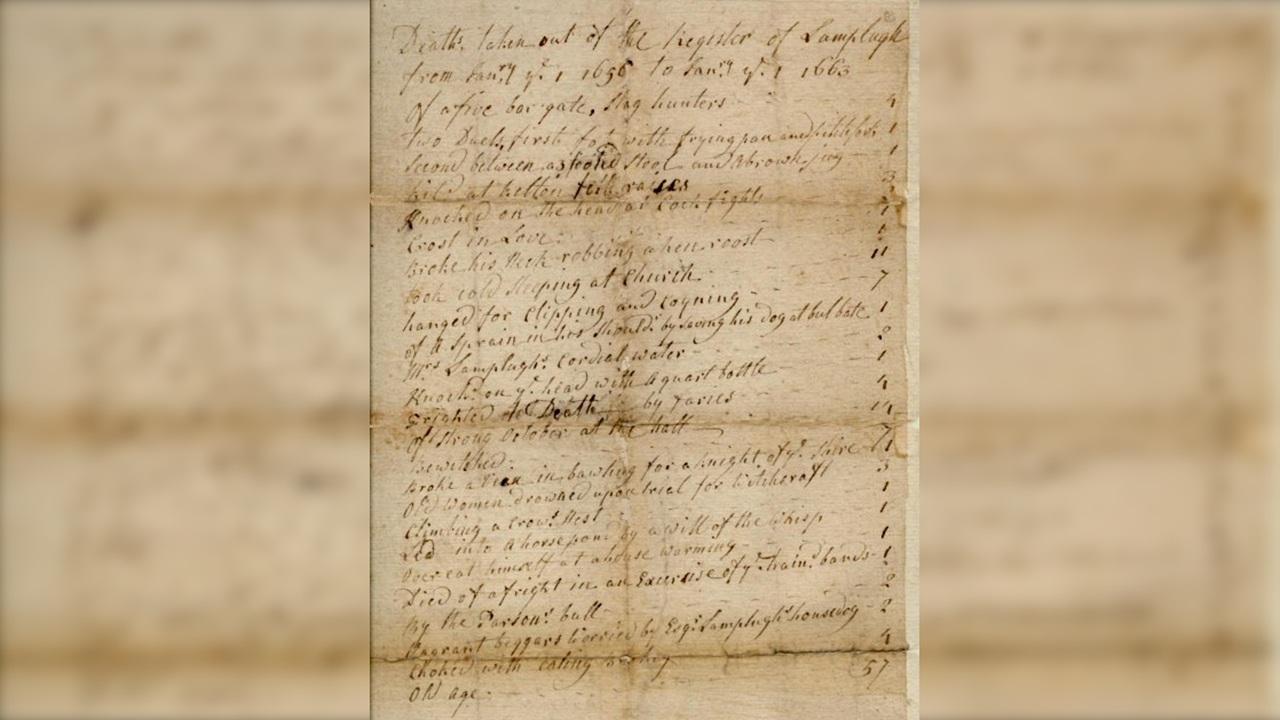 Deaths taken out of the Register of Lamplugh
from Janry ye 1 1656 to Janry ye 1 1663
Of a five bar gate, Stag hunters 4
two Duels, first fot with frying pan and pitchforks 1
Second between a 3 footed Stool and a brown jug 1
kild at kelton fell raises 3
Knocked on the head at Cock fights
Crost in Love 1
Broke his Neck robbing a hen roost
took cold sleeping at Church 11
hanged for Clipping and Coyning 7
of a Sprain in his Should by saving his dog at bul bate 1
Mrs Lamplughs Cordial water 2
Knockd on ye head with a quart bottle 1
frighted to Death by faries 4
Of Strong October at the hall 14
Bewitched 7
Broke a Vean in bawling for a knight of ye Shire 1
Old Women drowned upon trial for Witchcraft 3
Climbing a Crows Nest 1
Led into a horse pond by a will of the whisp 1
Over eat himself at a house warming 1
Died of a fright in an Exercise of ye traind bands 1
By the Parsons bull 2
Vagrant beggars worried by Esqr Lamplughs housedog 2
Choked with eating 4
Old age 57